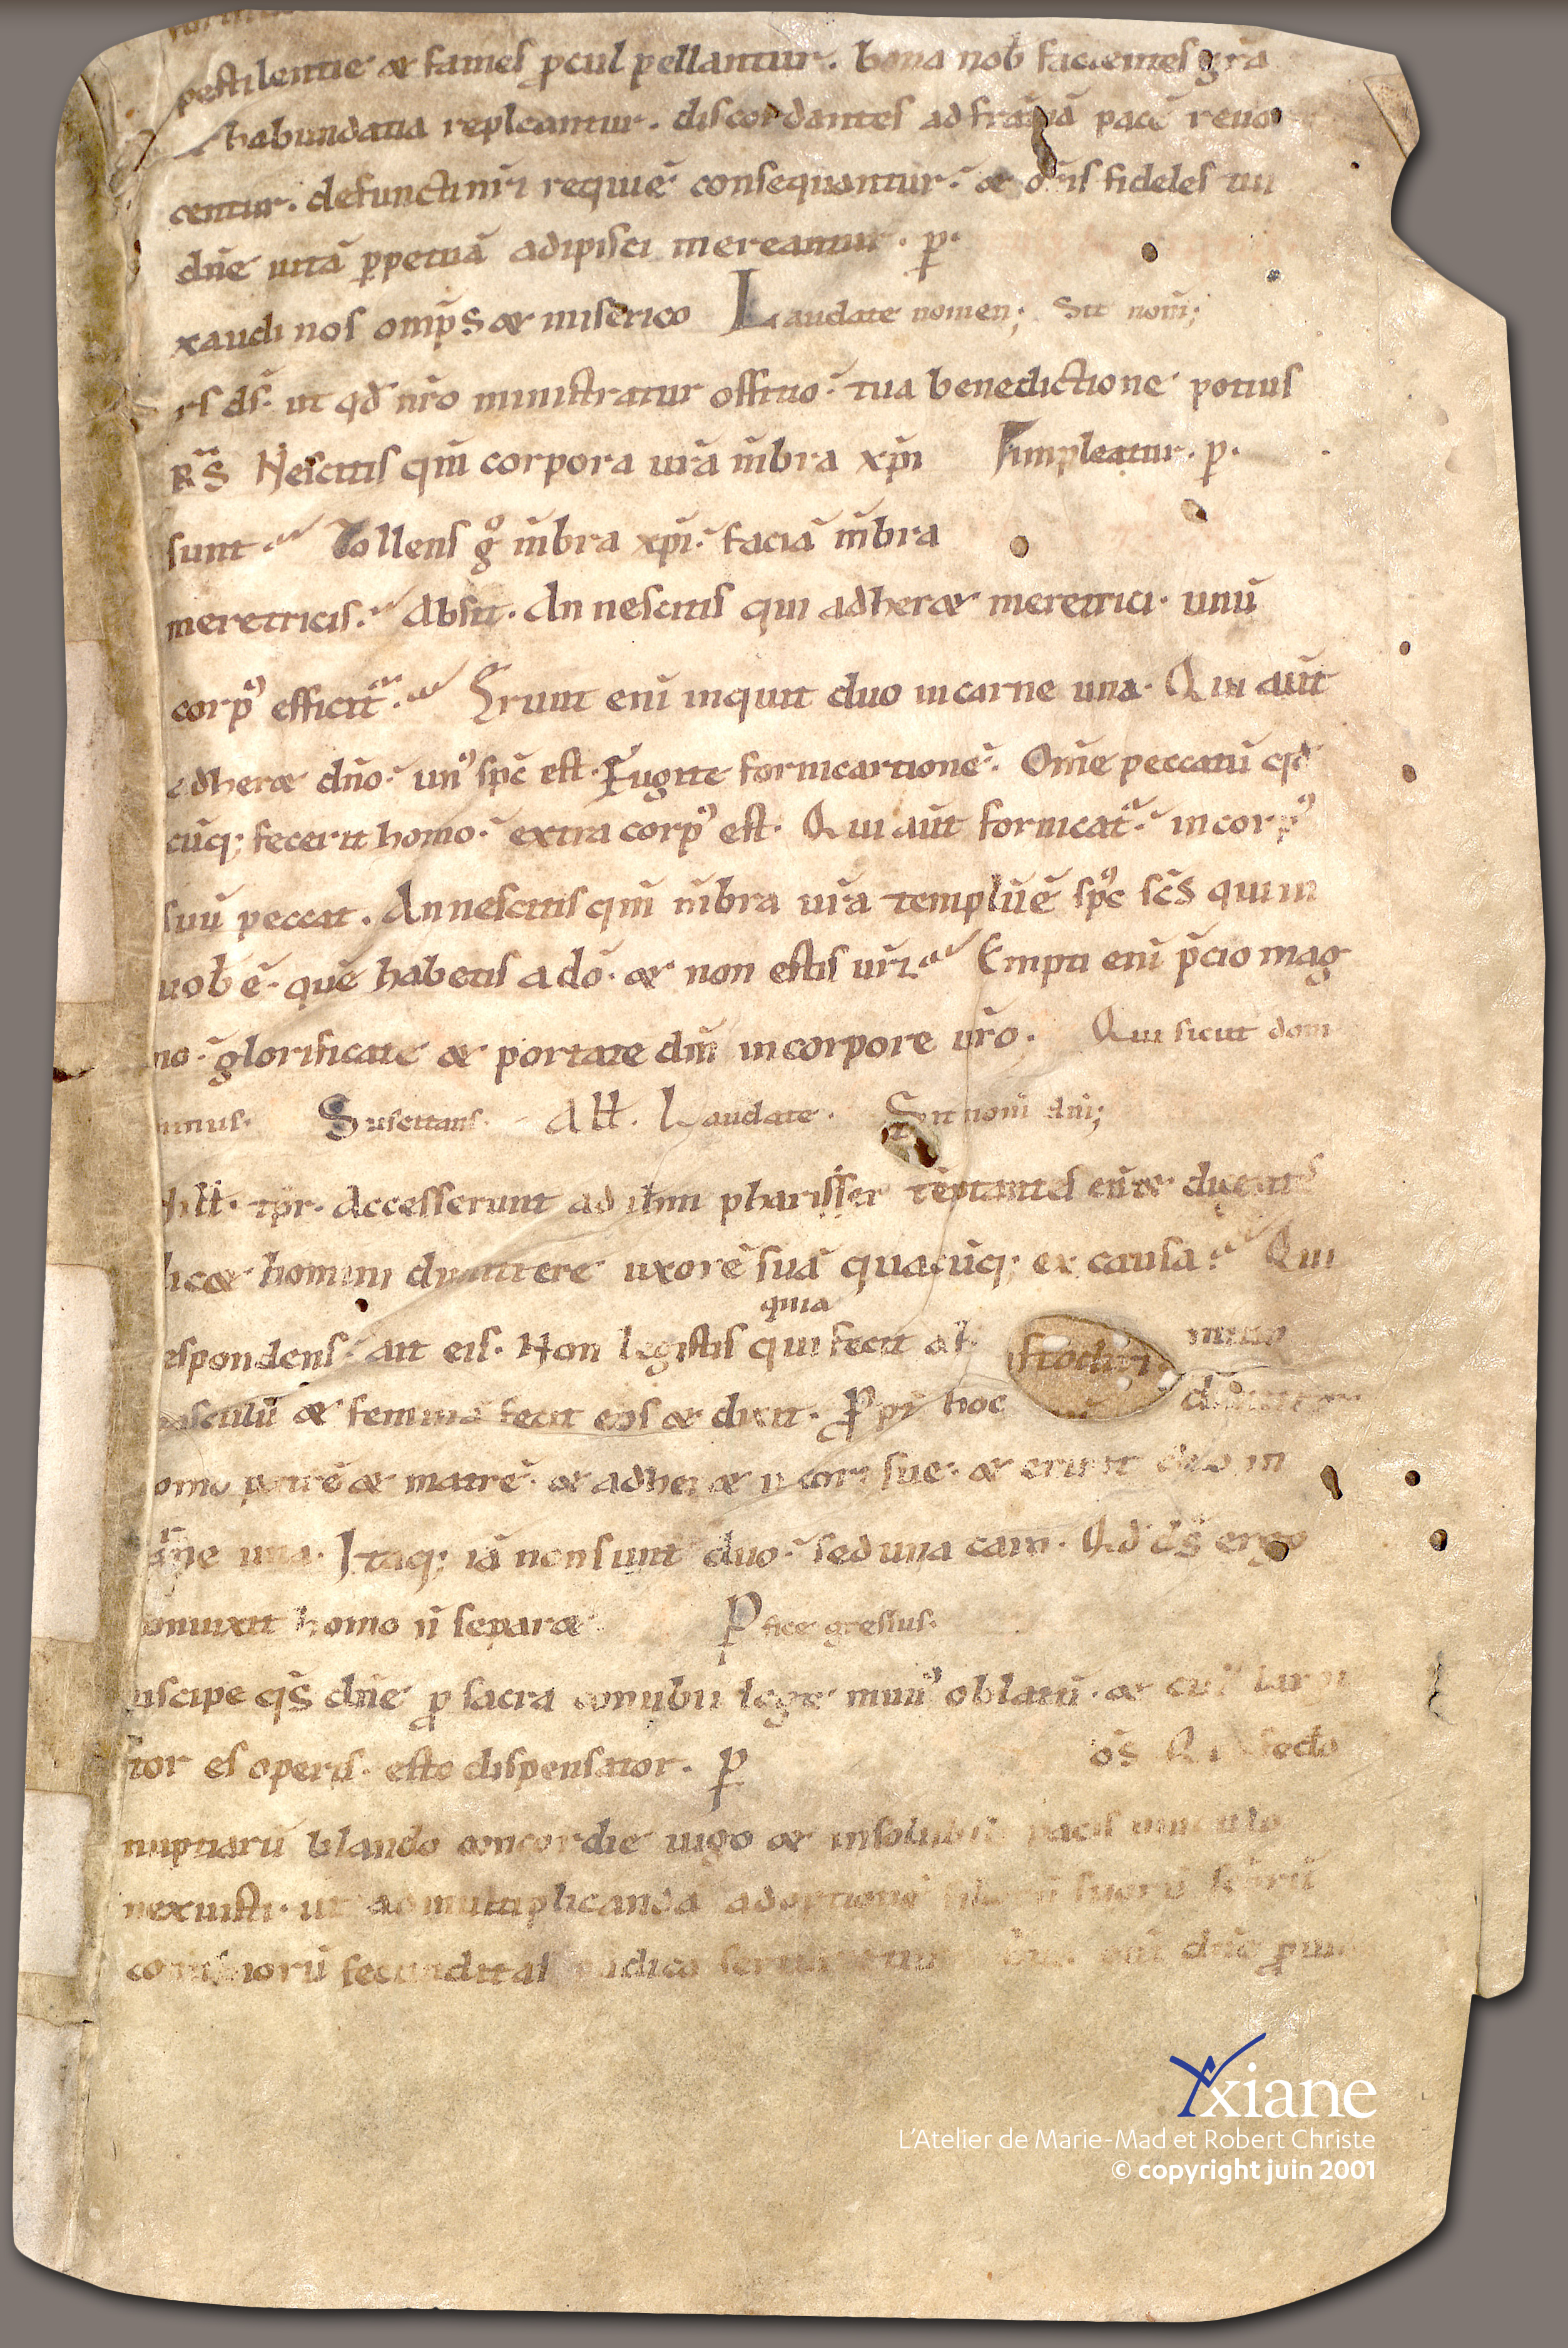 pestilentie & fames ꝓcul pellantur. bona nob facientes gr̄a
habundatia repleantur. discordantes ad fr̄anā pacē reuo
centur. defuncti nr̄i requiē consequantur. & om̄s fideles tui
dn̄e uitā ꝑpetuā adipisci mereantur. ꝑ.
xaudi nos omp̄s & miserico Laudate nomen; Sit nom̄;
rs ds̄. ut qd̄ nr̄o ministratur officio. tua benedictione potius
Nescitis qm̄ corpora ur̄a m̄bra xp̄i impleatur. ꝑ.
sunt Tollens g° m̄bra xp̄i. faciā m̄bra
meretricis. Absit. An nescitis qui adher& meretrici. unū
corpꝰ efficit̄. Erunt eni inquit duo in carne una. Qui aut̄
adher& dn̄o. unꝰ sp̄c est. Fugite fornicartionē. Om̄e peccatū qd̄
cūq; fecerit homo. extra corpꝰ est. Qui aut̄ fornicat̄. in corpꝰ
suū peccat. An nescitis qm̄ m̄bra ur̄a templū ē spc̄ sc̄s qui in
uob ē. quē habetis a dō. & non estis ur̄i. Empti eni p̄cio mag
no. glorificate & portate dm̄ in corpore ur̄o. Qui sicut dom
inus. Suscitans. All. Laudate. Sit nom dn̄i;
hll. tp̄r. Accesserunt ad ihm pharisei teptantes eū & dicentes
lic& homini dimittere uxorē suā quacūq; ex causa. Qui
quia
espondens. ait eis. Non legistis qui fecit ab initio
asculū & feminā fecit eos & dixit. Ꝓpt hoc dimittet
omo patrē & matrē. & adher& uxori sue. & erunt duo in
arne una. Itaq; iā non sunt duo. sed una caro. Qd d̄s ergo
oniunxit homo n̄ separ&. Ꝑfice gressus.
uscipe qs̄ dn̄e ꝓ sacra conubii lege munꝰ oblatū. & cuiꝰ largi
tor es operis. esto dispensator. ꝑ
os Qui fedo
nuptiarū blando concordie iugo & insolubili pacis uinculo
nexuisti. ut ad multiplicandā adoptionē filiorū
conubiorū fecunditas pudica dn̄e
yxiane
L'Atelier de Marie-Mad et Robert Christe
© copyright juin 2001